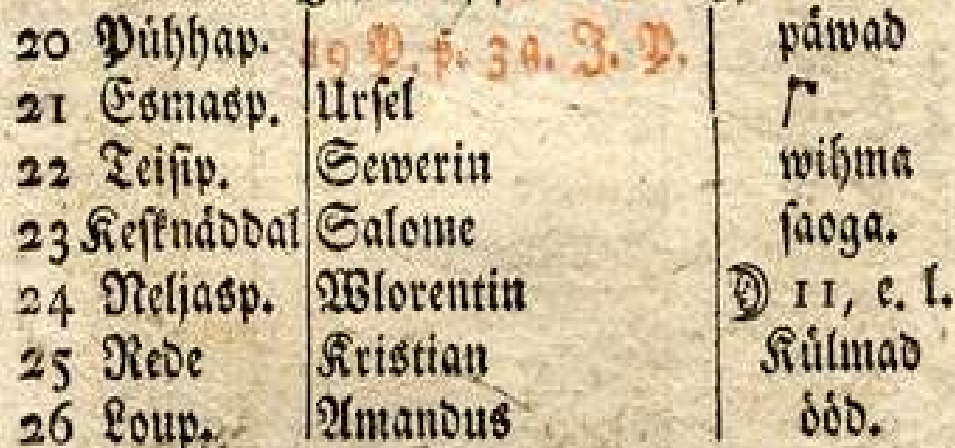 20 Pühhap. 19 P. p. 3 a. J. P. päwad
21 Esmasp. Ursel
22 Teisip. Sewerin wihma
23 Kesknäddal Salome saoga.
24 Neljasp. Wlorentin 11, e. l.
25 Rede Kristian Külmad
26 Loup. Amandus ööd.